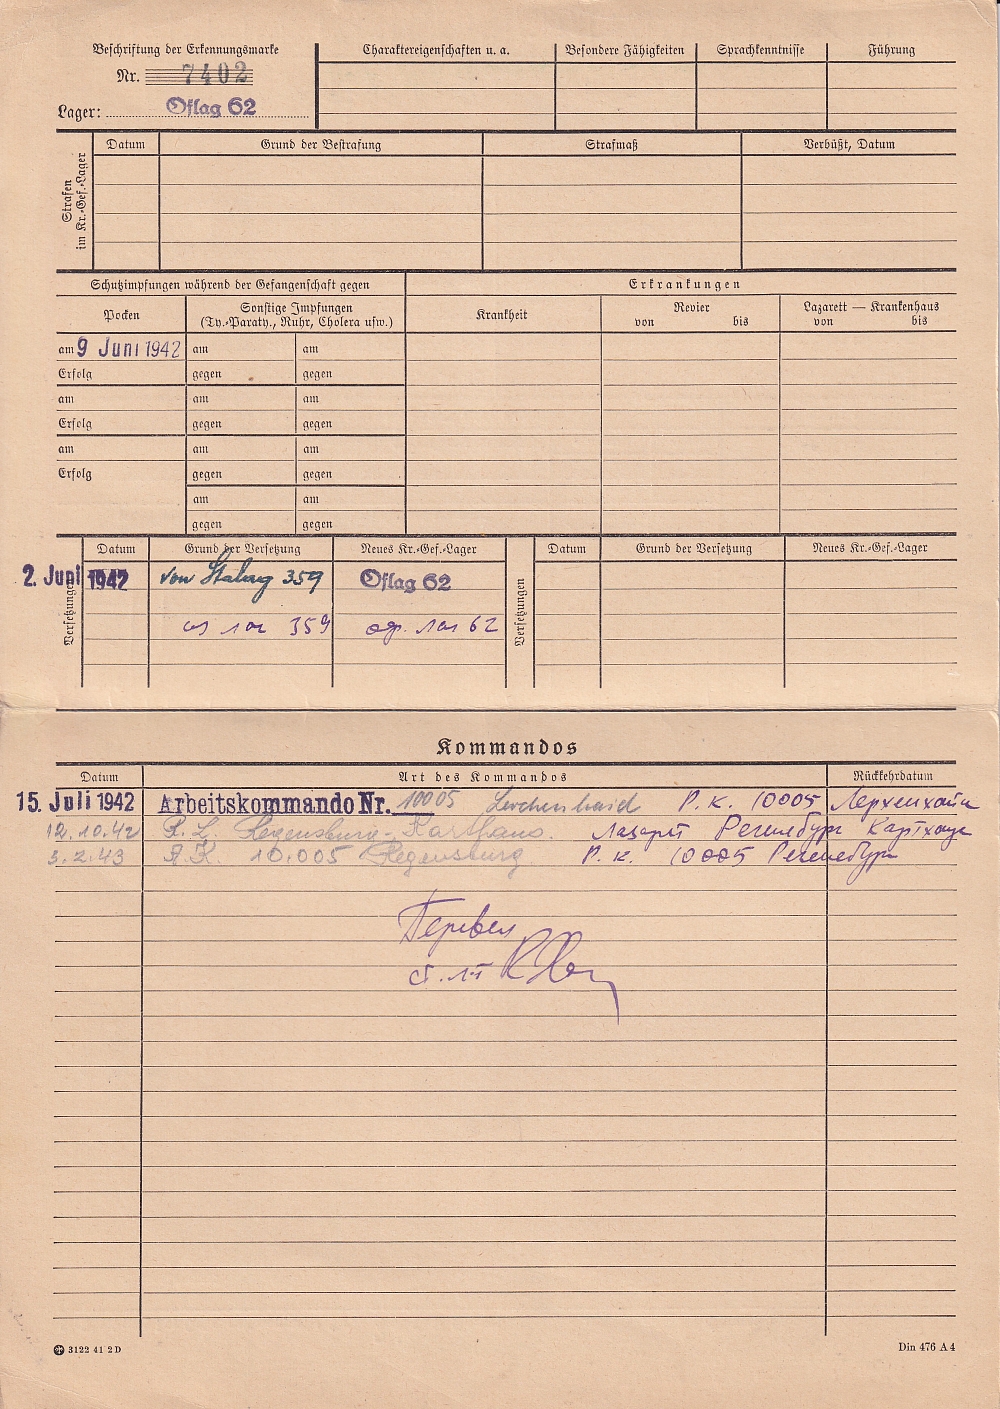 Beschriftung der Erkennungsmarke
Nr. 7402
Lager: Oflag 62
Charaktereigenschaften u. a.
Besondere Fähigkeiten
Sprachkenntnisse
Führung
Strafen im Kr.-Gef.-Lager
Datum
Grund der Bestrafung
Strafmaß
Verbüßt, Datum
Schutzimpfungen während der Gefangenschaft gegen
Erkrankungen
Pocken
Sonstige Impfungen
(Ty.-Paraty., Ruhr, Cholera usw.)
Krankheit
Revier
von bis
Lazarett — Krankenhaus
von bis
am 9 Juni 1942 am am
Erfolg gegen gegen
am am am
Erfolg gegen gegen
am am am
Erfolg gegen gegen
am am
gegen gegen
Versetzungen
Datum Grund der Versetzung Neues Kr.-Gef.-Lager
2. Juni 1942 von Stalag 359 Oflag 62
из лаг 359 оф. лаг 62
Versetzungen
Datum Grund der Versetzung Neues Kr.-Gef.-Lager
Kommandos
Datum Art des Kommandos Rückkehrdatum
15. Juli 1942 Arbeitskommando Nr. 10005 Р. к. 10005 Лерхенхайд
12.10.42 R. L. Regensburg-Karthaus. Лазарет Регенсбург Картхаус
3.2.43 A.K. 10.005 Regensburg Р. к. 10005 Регенсбург
Перевел
ст. л-т
3122 41 2 D
Din 476 A 4